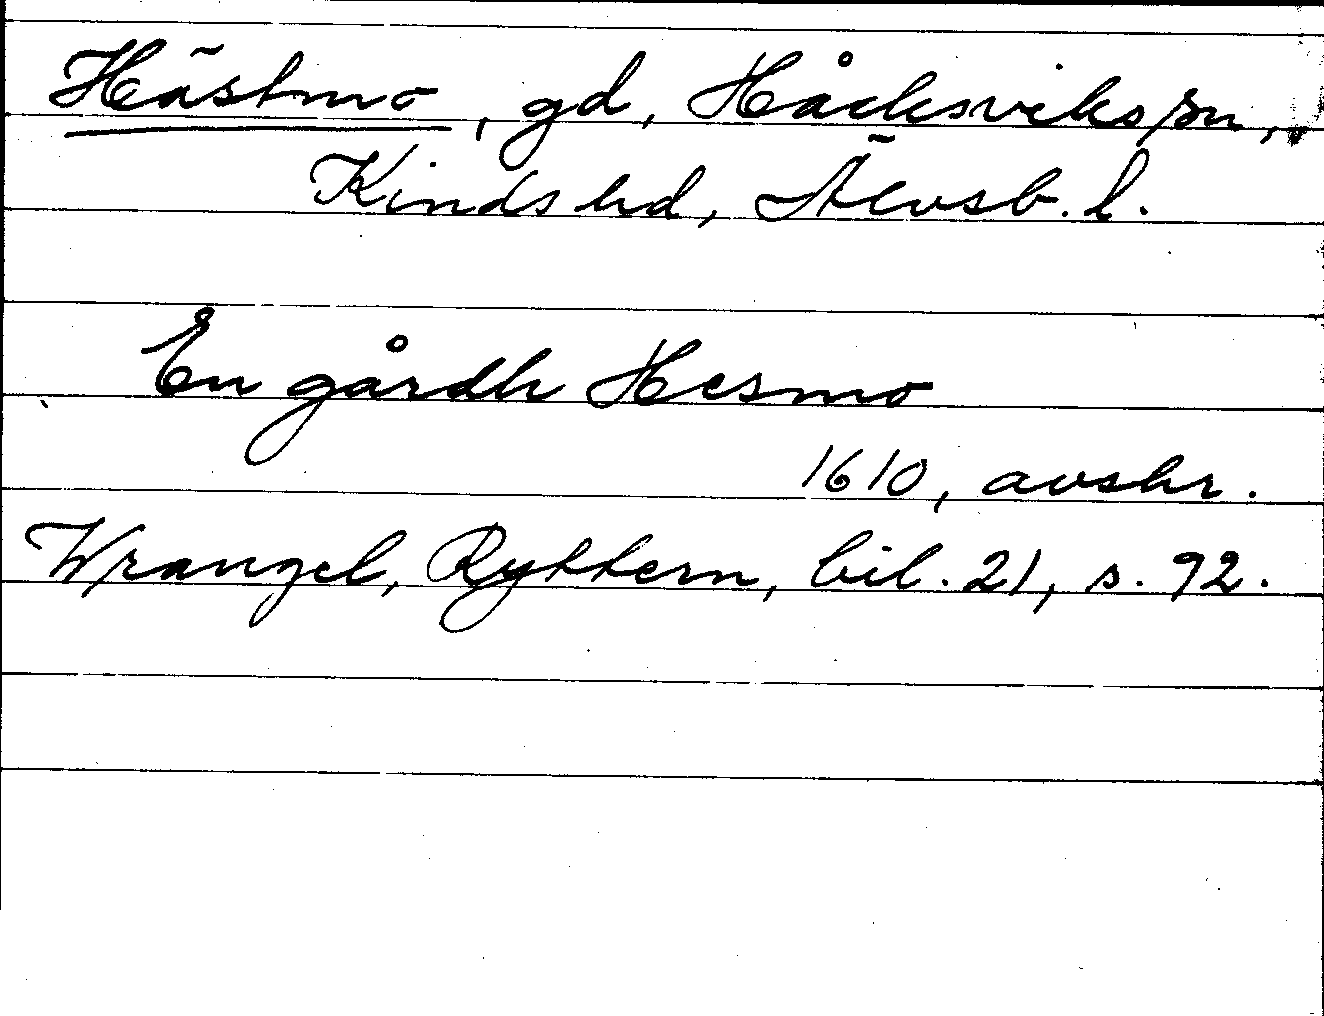 Hästmo, gd, Håcksviks sn,
Kinds hd, Älvsb. l.
En gårdh Hesmo
1610, avskr.
Wrangel, Ryttern, bil. 21, s. 92.